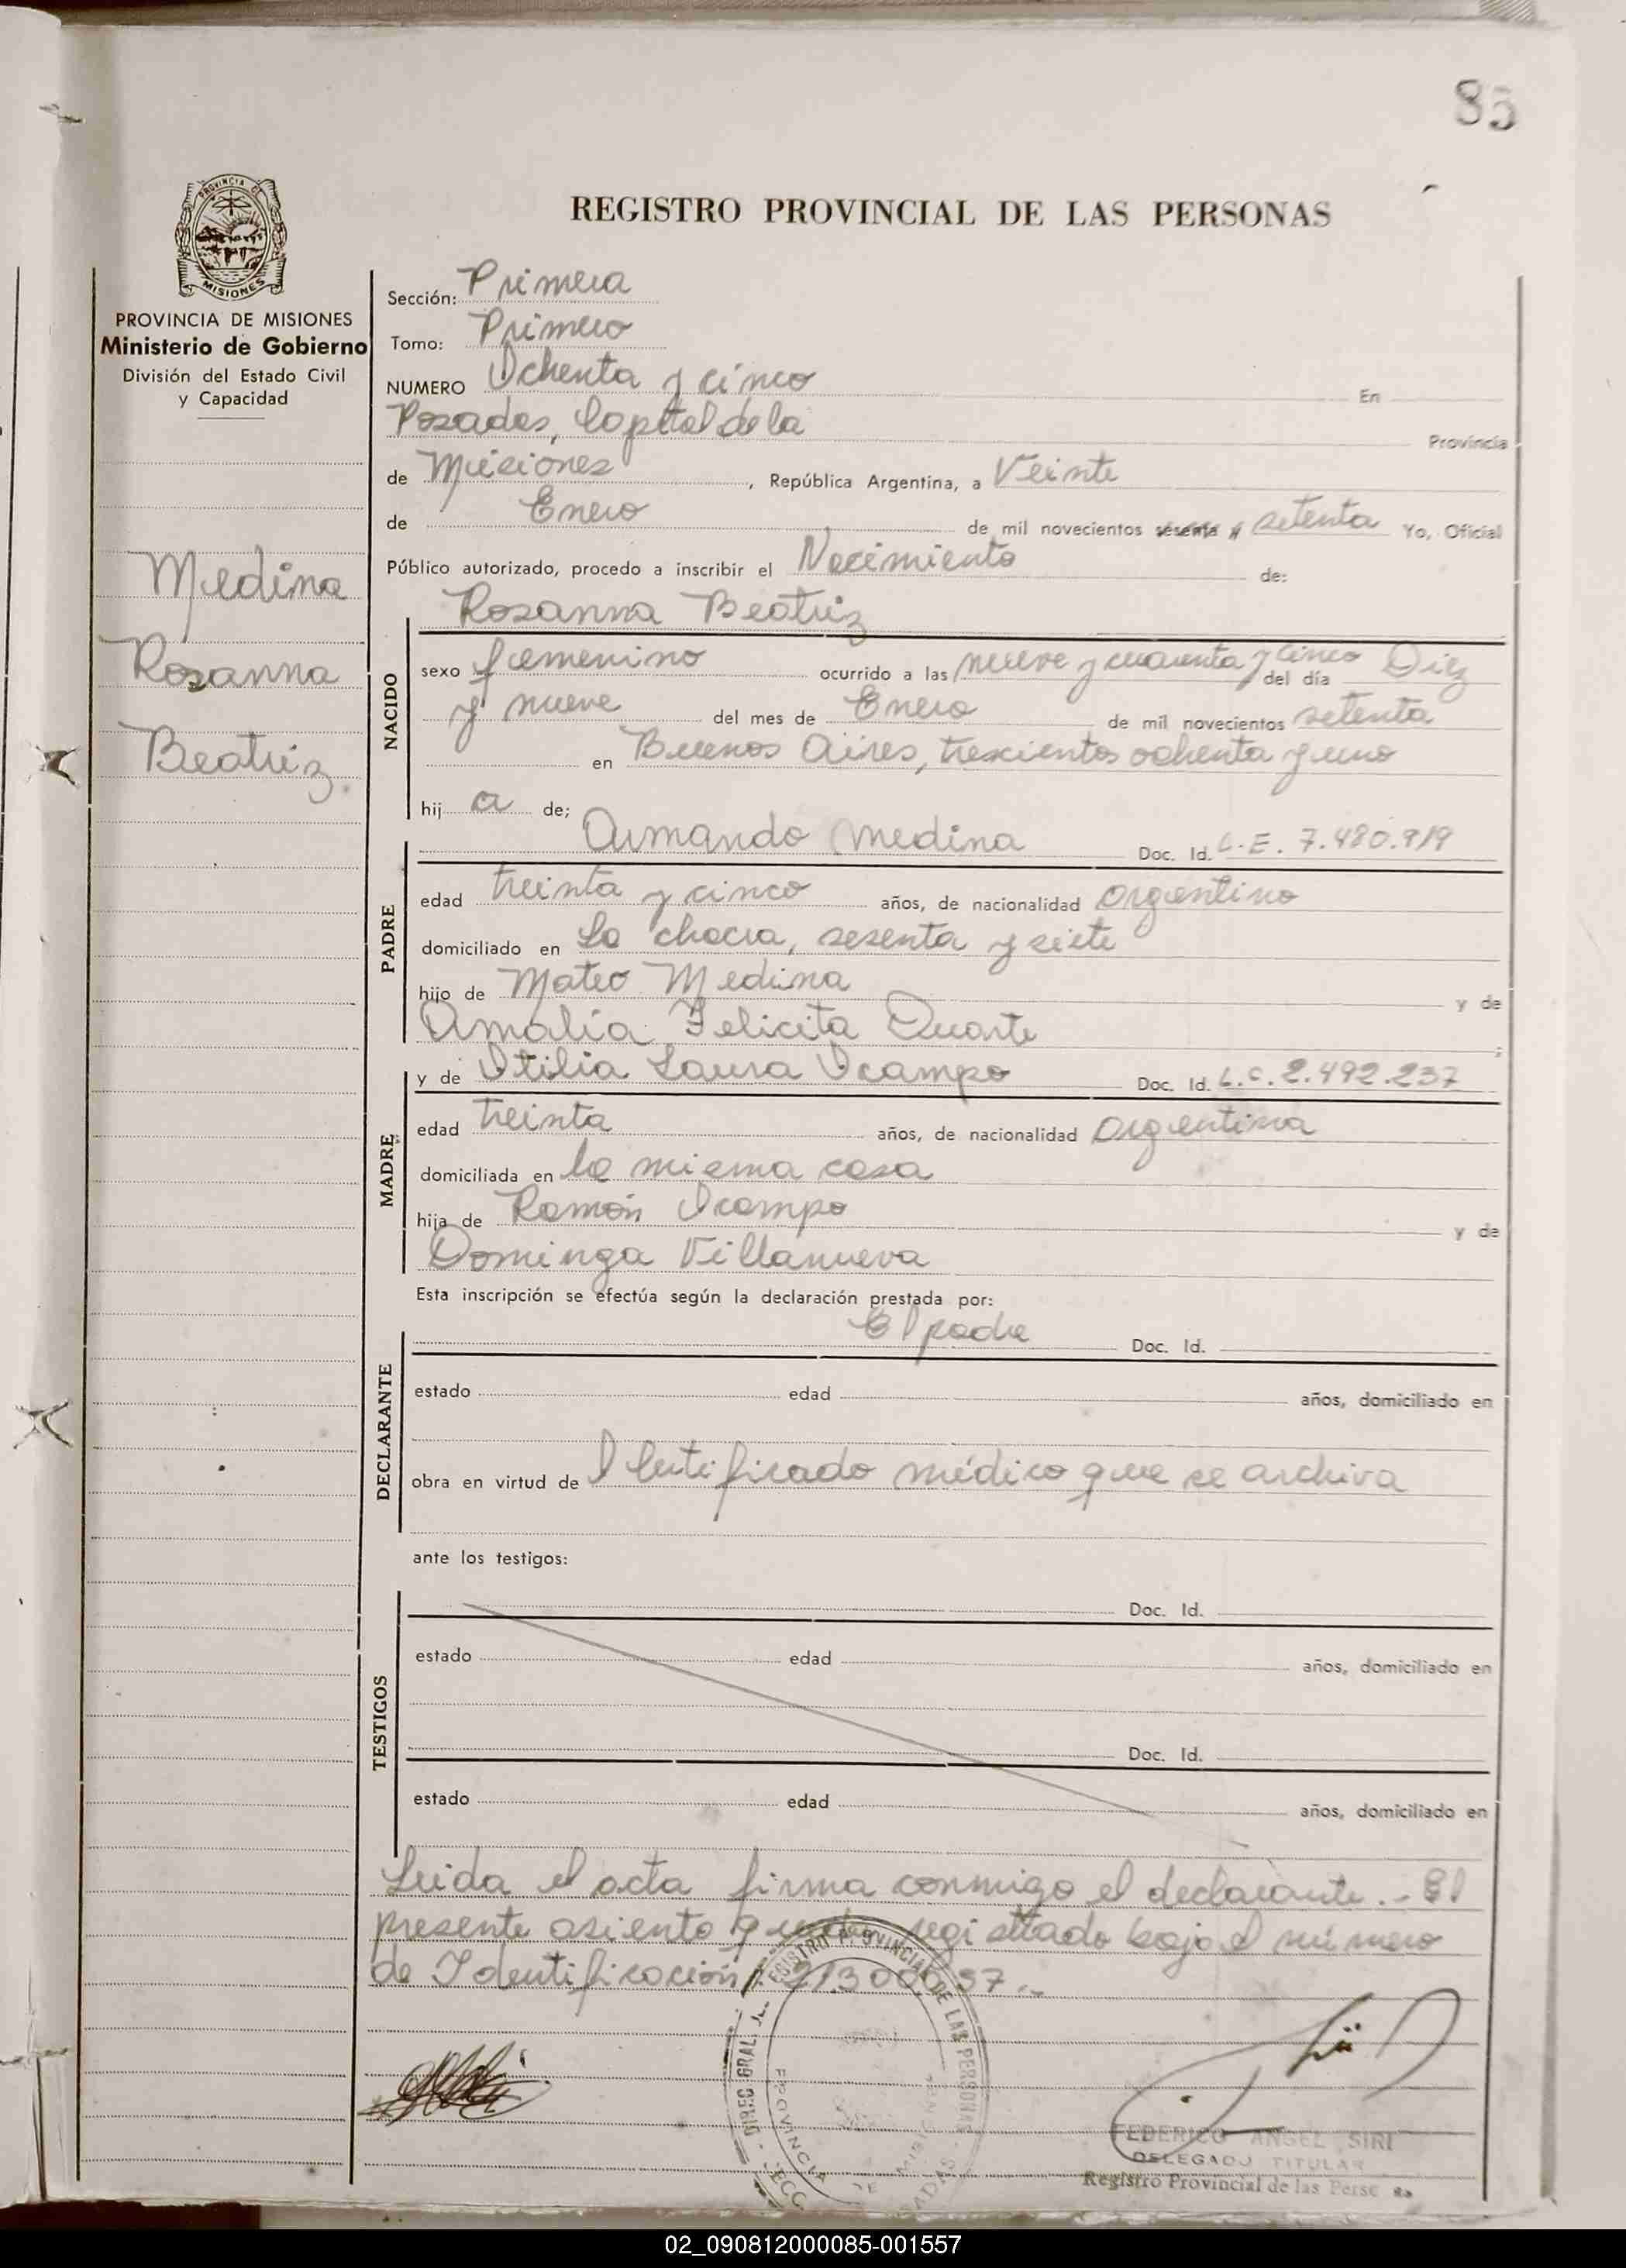 85
REGISTRO PROVINCIAL DE LAS PERSONAS
PROVINCIA DE
MISIONES
PROVINCIA DE MISIONES
Ministerio de Gobierno
División del Estado Civil
y Capacidad
Medina
Rosanna
Beatriz.
Sección: Primera
Tomo: Primero
NUMERO Ochenta y cinco En
Posadas, Capital de la Provincia
de Misiones, República Argentina, a Veinte
de Enero de mil novecientos sesenta y setenta Yo, Oficial
Público autorizado, procedo a inscribir el Nacimiento de:
Rosanna Beatriz
NACIDO
sexo femenino ocurrido a las nueve y cuarenta y cinco del día Diez
y nueve del mes de Enero de mil novecientos setenta
en Buenos Aires, trescientos ochenta y uno
hij a de;
Armando Medina Doc. Id. L.E. 7.480.919
PADRE
edad treinta y cinco años, de nacionalidad argentino
domiciliado en La chacra, sesenta y siete
hijo de Mateo Medina y de
Amalia Felicita Duarte ;
y de Otilia Laura Ocampo Doc. Id. L.C. 2.492.237
MADRE
edad treinta años, de nacionalidad argentina
domiciliada en la misma casa
hija de Ramón Ocampo y de
Dominga Villanueva
Esta inscripción se efectúa según la declaración prestada por:
El padre Doc. Id.
DECLARANTE
estado edad años, domiciliado en
obra en virtud de Certificado médico que se archiva
ante los testigos:
Doc. Id.
TESTIGOS
estado edad años, domiciliado en
Doc. Id.
estado edad años, domiciliado en
Leida el acta firma conmigo el declarante.- El
presente asiento queda registrado bajo el número
de Identificación
DIREC GRAL. REGISTRO PROVINCIAL DE LAS PERSONAS
PROVINCIA DE MISIONES
FEDERICO ANGEL SIRI
DELEGADO TITULAR
Registro Provincial de las Perso as
02_090812000085-001557